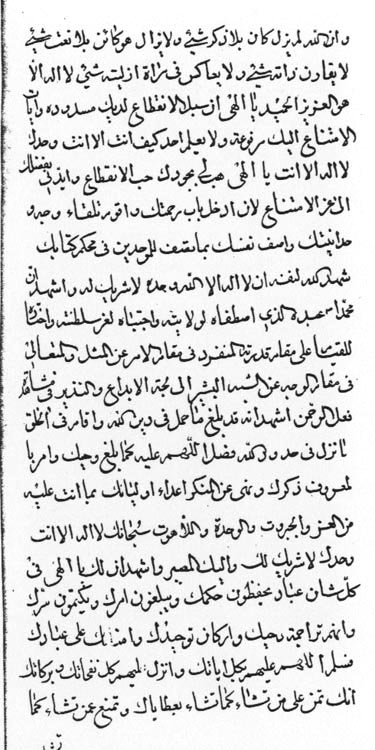 وان الله لم يزل كان بلا ذكر شيئ ولا يزال هو كائن بلا نعت شيئ
لا يقارن ذاته شيئ ولا يعاكس في مرآة ازليته شيئ لا اله الا
هو العزيز الحميد يا الهي ان سبل الانقطاع لديك مسدودة وآيات
الامتناع اليك مرفوعة ولا يعلم احد كيف انت الا انت وحدك
لا اله الا انت يا الهي هب لي بجودك حب الانقطاع وايدني بفضلك
الى عز الامتناع لان ادخل باب رحمتك واقوم تلقاء وجه و
حدانيتك واصف نفسك بما تصف للموحدين في محكم كتابك
شهد الله لنفسه ان لا اله الا الله وحده لا شريك له واشهد ان
محمدا عبده الذي اصطفاه لولايته واجتباه لعز سلطنته واختاره
للقيام على مقام قدرته المنفرد في مقام الامر عن المثل والمتعالي
في مقام الوجه عن الشبه البشر الى لجة الابداع والنذير في
فعل الرحمن اشهد انه قد بلغ ما حمل في دين الله واقام في الخلق
ما نزل في حدود الله فصل اللهم عليه كما بلغ وحيك وامر با
لمعروف ذكرك ونهى عن المنكر اعداء اوليائك بما انت عليه
من العز والجبروت والوحدة واللاهوت سبحانك لا اله الا انت
وحدك لا شريك لك واليك المصير واشهد ان لك يا الهي في
كل شان عباد يحفظون حكمك ويبلغون امرك ويكتمون سرك
وانهم تراجمة وحيك واركان توحيدك وامنائك على عبادك
فصل اللهم عليهم بكل اياتك وانزل عليهم كل نفحاتك وبركاتك
انك تمن على من تشاء كما تشاء بعطاياك وتمنع عن تشاء كما